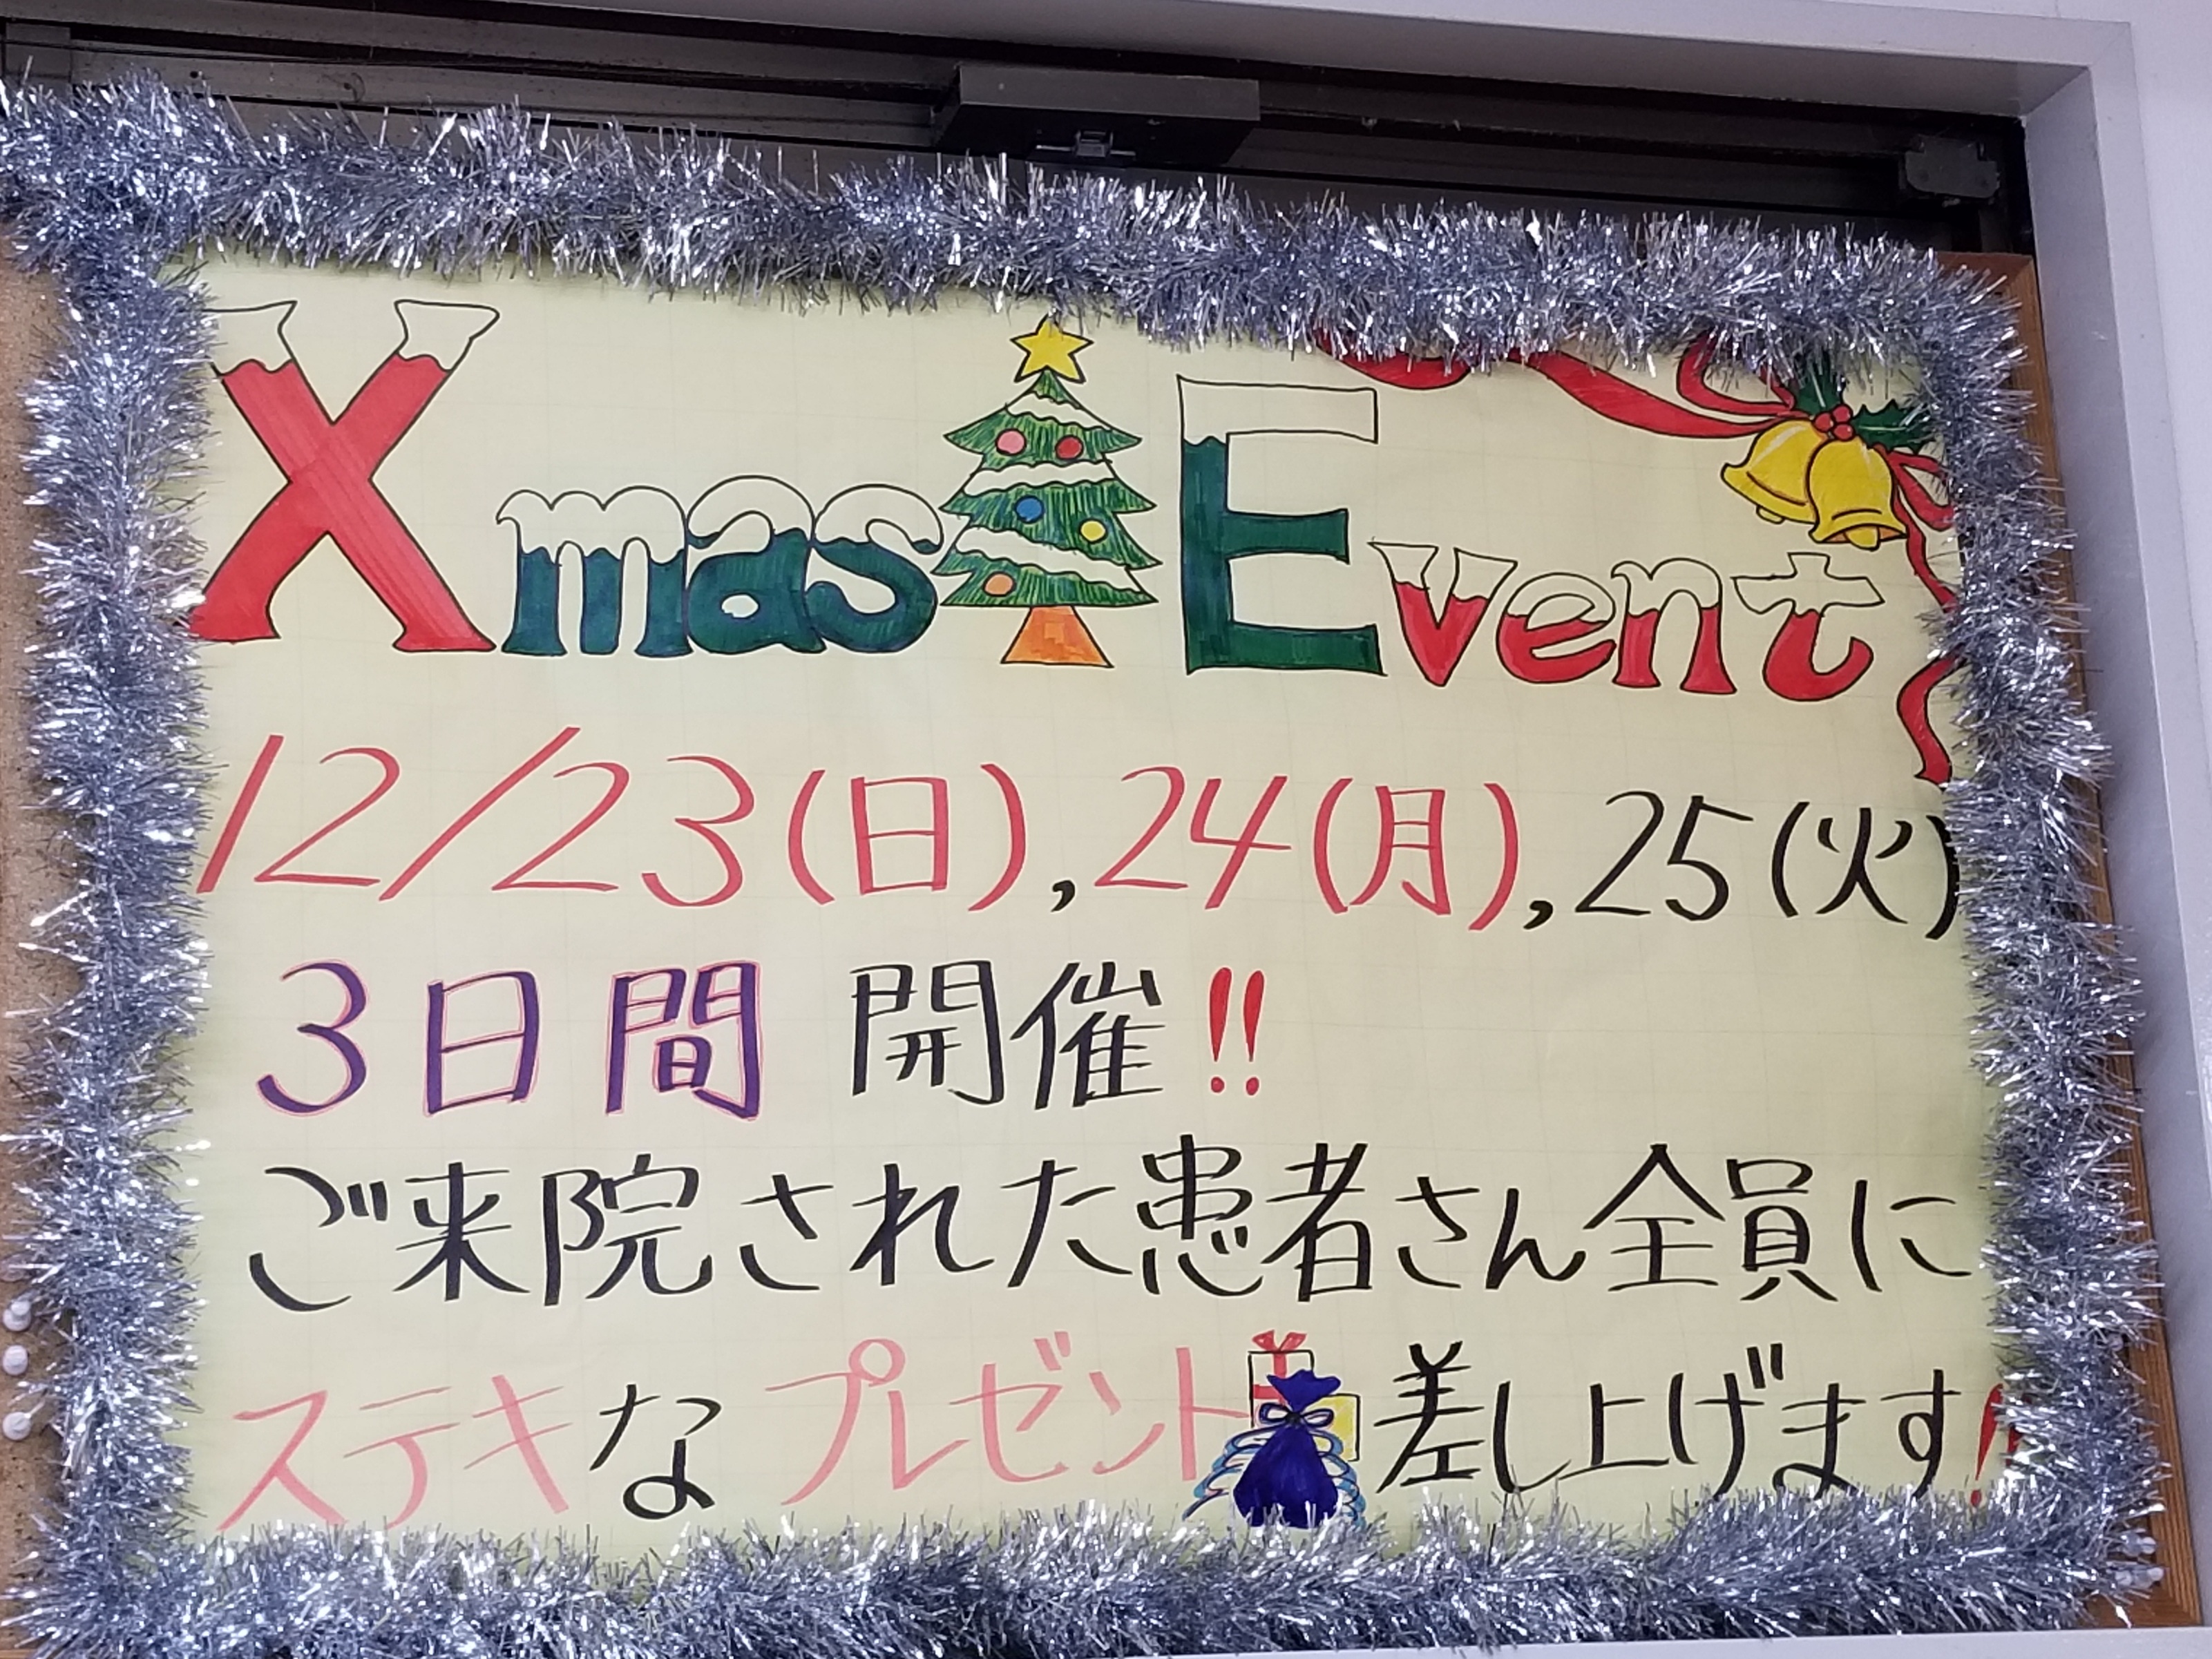 Xmas Event
12/23(日),24(月),25(火)
3日間 開催!!
ご来院された患者さん全員に
ステキなプレゼント差し上げます!